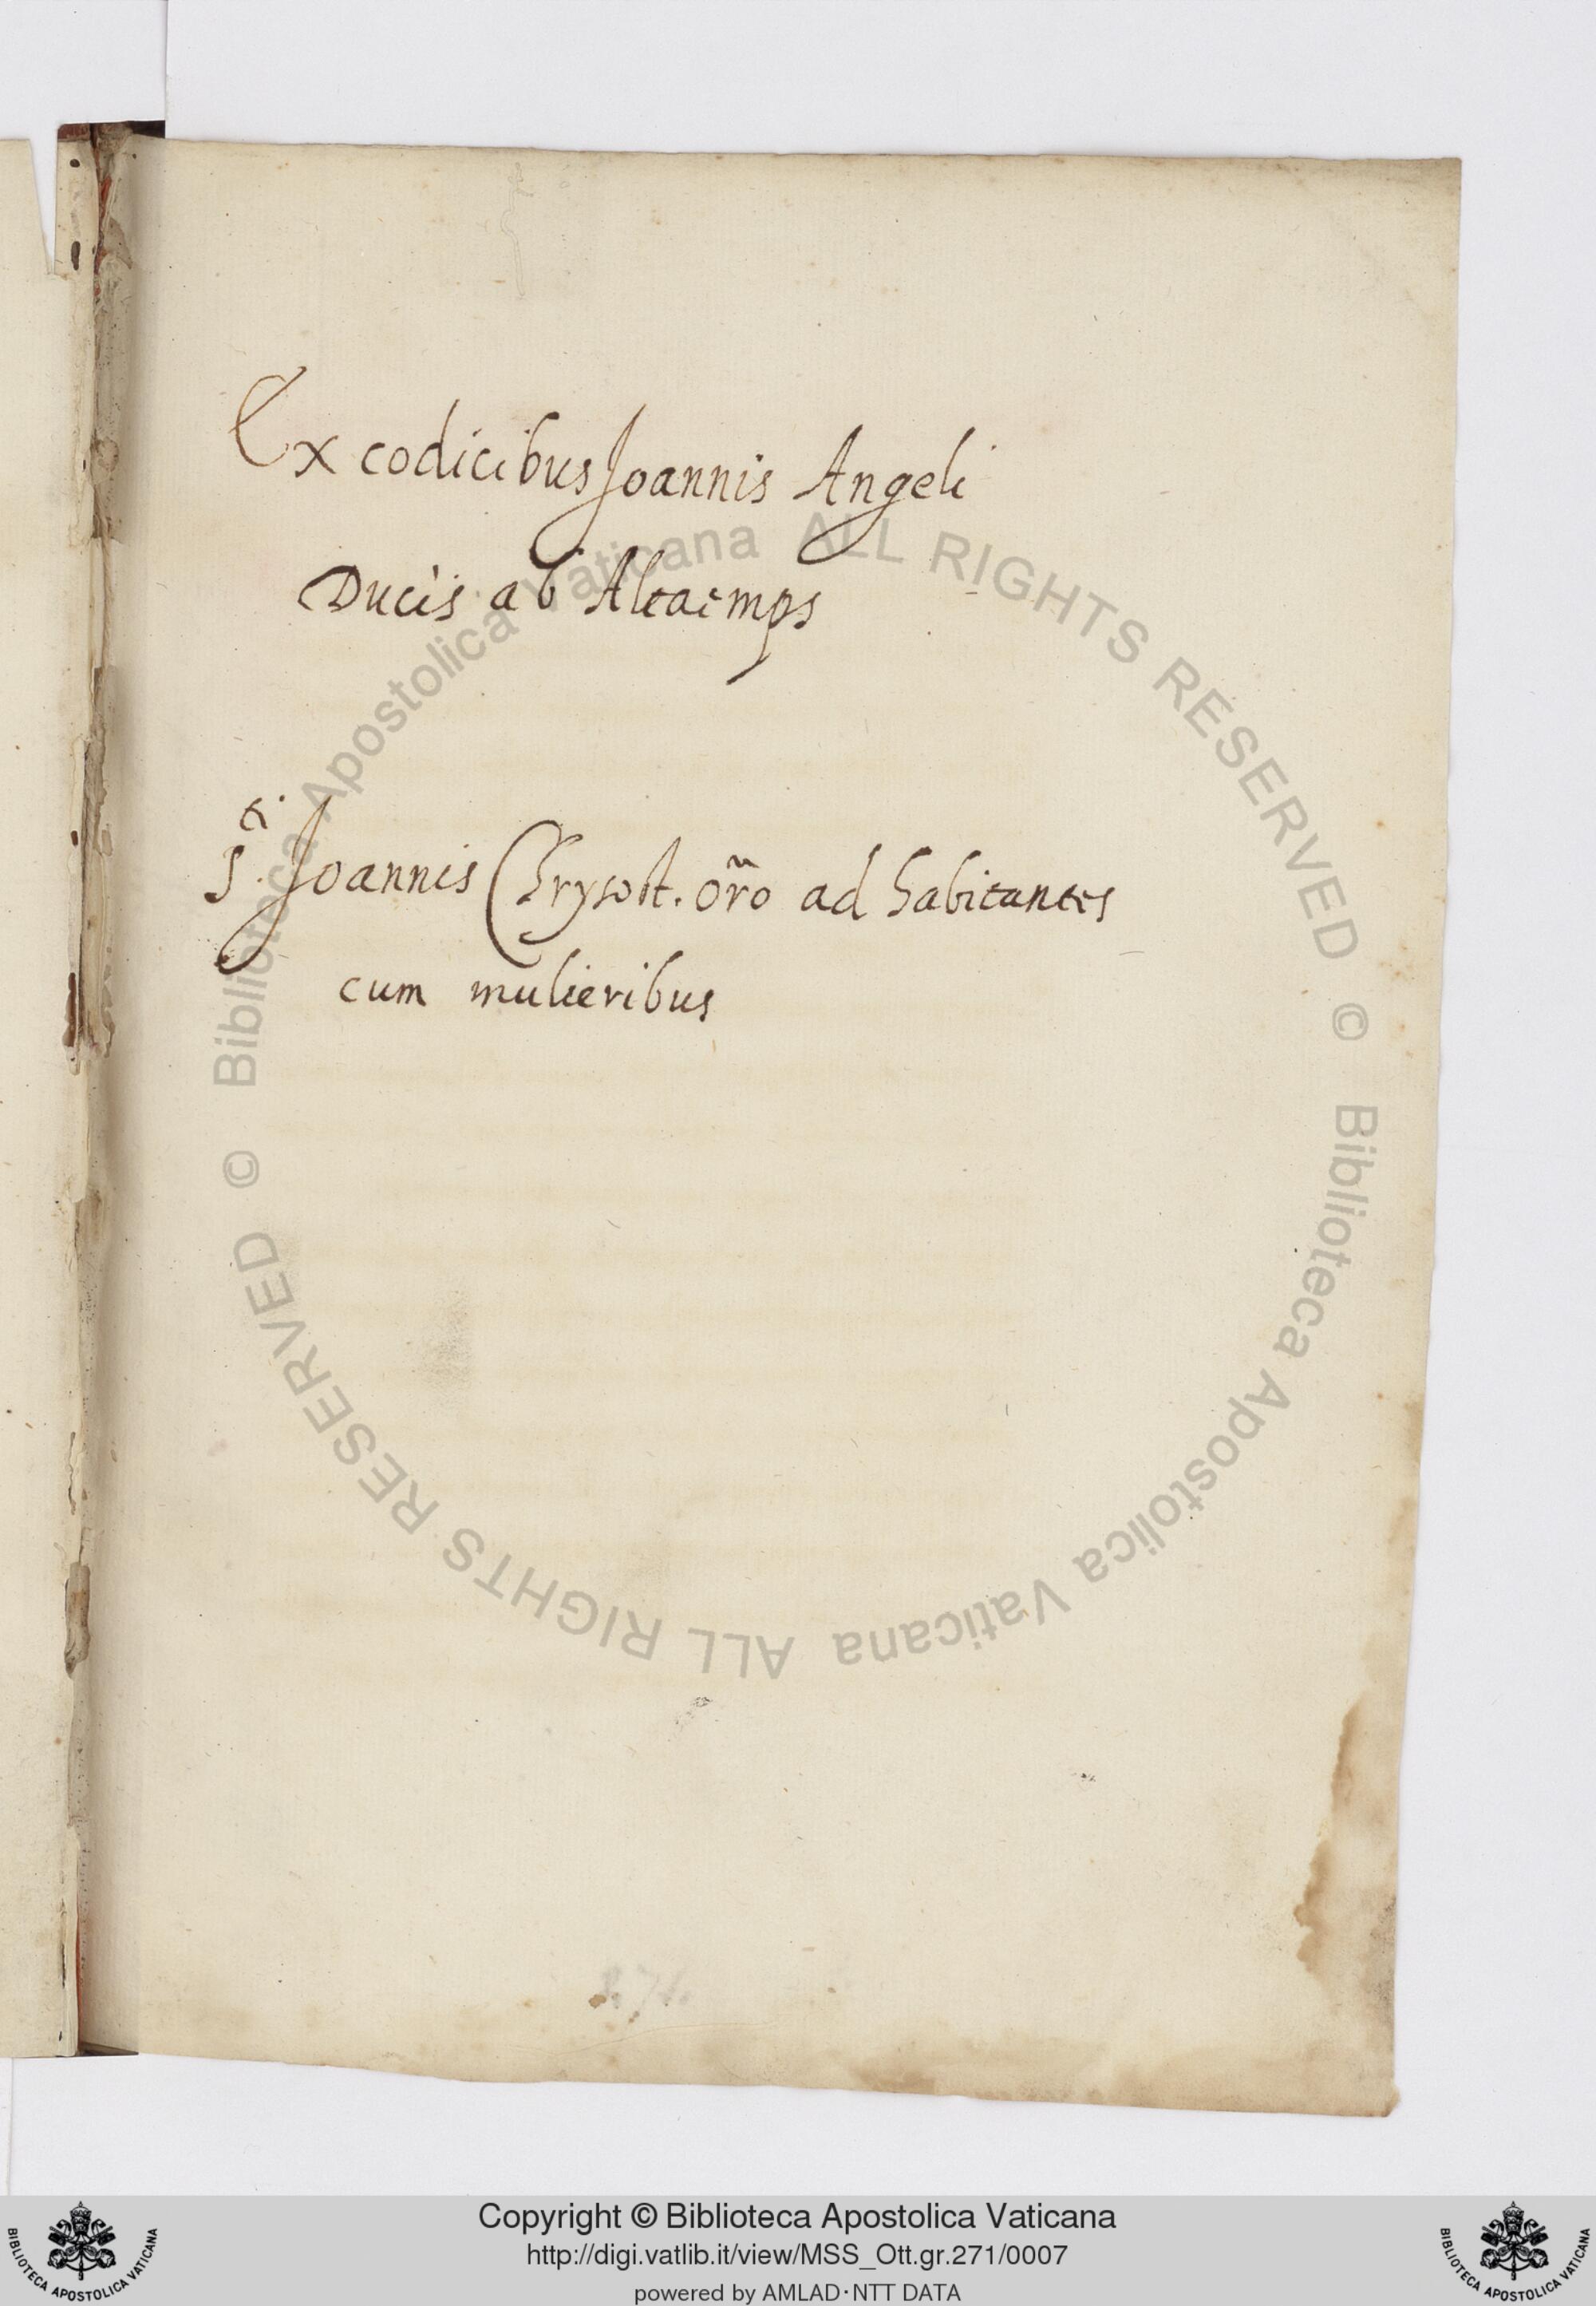 Ex codicibus Joannis Angeli
Ducis ab Altaemps
S.ti Joannis Chrysost. orõ ad habitantes
cum mulieribus
271.
© Biblioteca Apostolica Vaticana ALL RIGHTS RESERVED
© Biblioteca Apostolica Vaticana ALL RIGHTS RESERVED
Copyright © Biblioteca Apostolica Vaticana
http://digi.vatlib.it/view/MSS_Ott.gr.271/0007
powered by AMLAD·NTT DATA
BIBLIOTECA APOSTOLICA VATICANA
BIBLIOTECA APOSTOLICA VATICANA